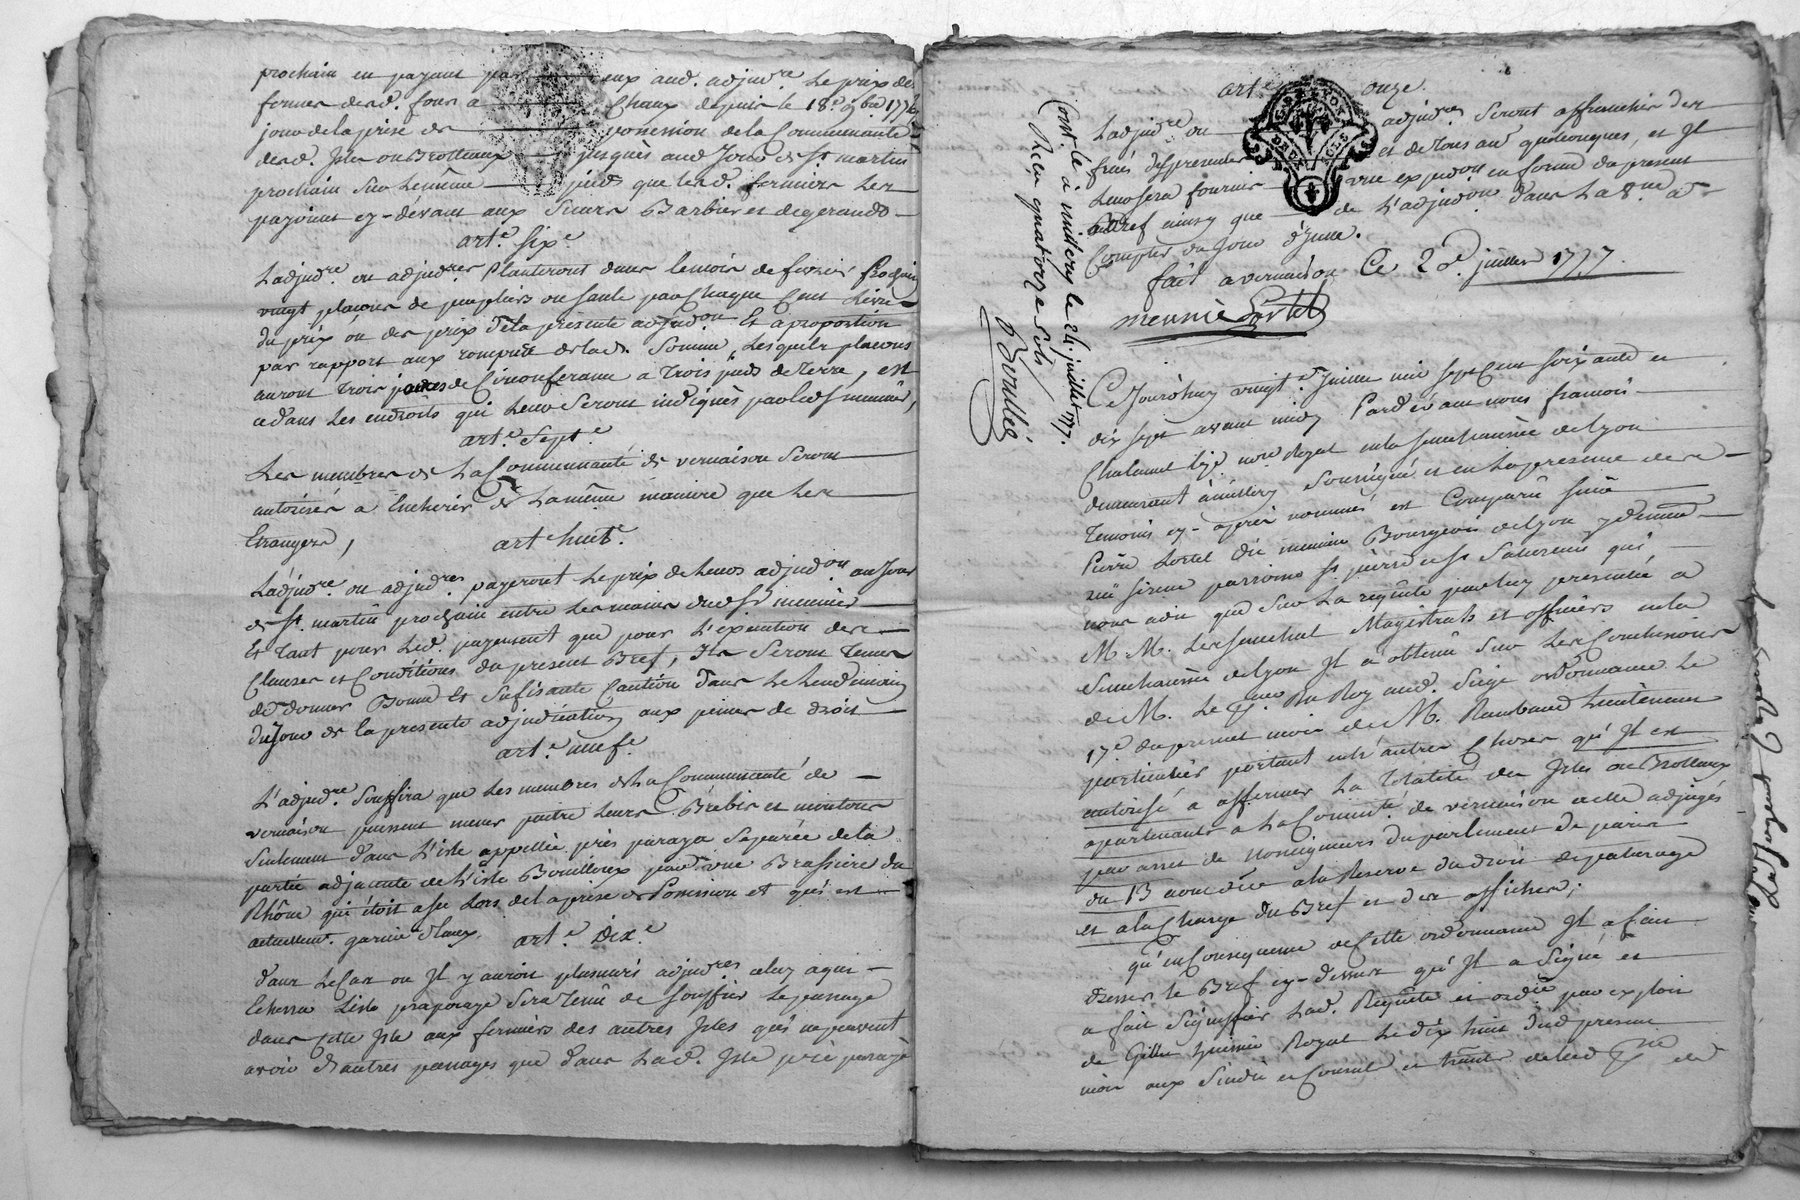 prochain en payant par eux aud. adjudre. Le prix des
fermes desd. fours a Chaux depuis le 18e. 9bre 1776
jour de la prise de possession de la Communauté
desd. Isles ou Brotteaux jusques aud Jour de St. martin
prochain sur le même pied que lesd. fermiers les
payoient cy-devant aux Sieurs Barbier et degerando
arte. sixe
L'adjudre ou adjudres planteront dans le mois de fevrier prochain
vingt plançons de peupliers ou saule par Chaque Cent Livres
du prix ou des prix de la presente adjudon Et a proportion
par rapport aux rompüe de lad. Somme, Lesquels plançons
auront trois pouces de Circonferance a trois pieds de terre, et
ce dans les endroits qui leur seront indiqués par led. sr meunier,
arte. Septe.
Les membres de La Communauté de vernaison Seront
autorisés a Encherir de la même maniere que les
Etrangers,
arte huite.
L'adjudre. ou adjudres. payeront Le prix de Leurs adjudon au Jour
de St. martin prochain entre Les mains dud. Sr meunier
Et tant pour led. payement que pour L'execution des
Clauses et Conditions du present Bref, Ils Seront tenus
de donner Bonne Et Sufisante Caution dans le Lendemain
du Jour de la presente adjudication aux peines de droit
arte. neufe
L'adjudre. Souffrira que Les membres de la Communauté de
vernaison puissent mener paitre Leurs Brebis et moutons
Seulement dans L'isle appellée près paraza Separée de la
partie adjacente de L'isle Bouilloux par une Brassiere du
Rhône qui étoit a sec Lors de la prise de Possession et qui est
actuellemt. garnie d'eaux.
arte. dixe
dans Le Cas ou Il y auroit plusieurs adjudres celuy a qui
Echerra L'isle praparage Sera tenu de souffrir Le passage
dans cette Isle aux fermiers des autres Isles qui ne peuvent
avoir d'autres passages que dans Lad. Isle pré parage
arte onze.
L'adjudre ou adjudres. Seront affranchis des
frais des presentes et de tous autres quelconques, et Il
Leur sera fourni une expedon en forme du present
Bref ainsy que de L'adjudon dans La 8ne a
Compter du Jour d'ycelle.
fait a vernaison Ce 20e. juillet 1777.
meunié Sortel
Cont. le à millery le 24. juillet 1777.
Reçu quatorze sols
Cejourd'huy vingte. Juillet mil sept Cent soixante et
dix sept avant midy Pardevant nous francois
notre Royal en la senechaussée de Lyon
demeurant a millery Soussigné et en La presence des
temoins cy-après nommés est Comparu sieur
Pierre Sortel dit meunier Bourgeois de Lyon y demeurant
rüe sirene paroisse St. pierre et St Saturnin qui
nous a dit que Sur La requête par luy presentée a
M.M. Les senechal Magistrats et officiers en la
Senechaussée de Lyon Il a obtenu Sur Les Conclusions
de M. Le Pr. Du Roy aud. Siege ordonnance Le
17e du present mois de M. Rambaud Lieutenant
particulier portant entr'autres Choses qu'Il est
autorisé a affermer La totalité des Isles ou Brotteaux
apartenants a La Commté. de vernaison a elle adjugés
par arret de Nosseigneurs du parlement de paris
du 13 aout a la Reserve du droit de paturage
et a la Charge du Bref et des affiches;
qu'en Consequence de Cette ordonnance Il a fait
dresser le Bref cy-dessus qu'Il a Signé et
a fait Signiffier Lad. Requête et ordce par exploit
de Gilles huissier Royal Le dix huit dud present
mois aux Sindic et Consuls et de Lad.